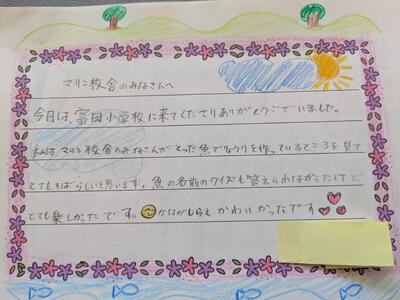 マリン校舎のみなさんへ
今日は、富岡小学校に来てくださりありがとうございました。
私は、マリン校舎のみなさんがとった魚でりょうりを作っているところを見て
とてもすばらしいと思います。魚の名前のクイズも答えられなかったけど
とても楽しかったです。かながしらもかわいかったです